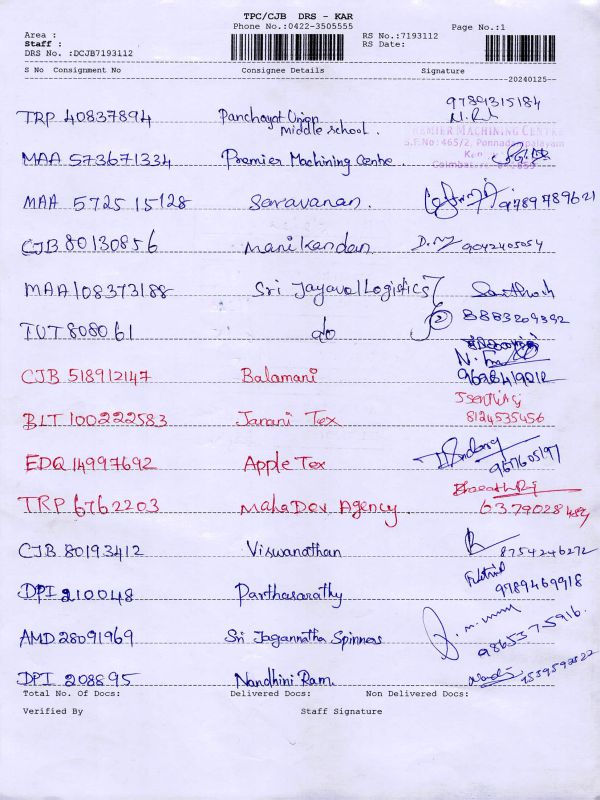 TPC/CJB DRS - KAR
Phone No.:0422-3505555 Page No.:1
Area : RS No.:7193112
Staff : RS Date:
DRS No. :DCJB7193112
S No Consignment No Consignee Details Signature
20240125
9789315184
TRP 40837894 Panchayat Union middle school.
PREMIER MACHINING CENTRE
S.F.No: 465/2, Ponnadampalayam
MAA 573671334 Premier Machining Centre.
MAA 572515128 Saravanan. 9789789621
CJB 80130856 Manikandan 9042405054
MAA 108373188 Sri Jayaval Logistics Santhosh
TUT 808061 do 8883209392
CJB 518912147 Balamani 9698419012
BLT 100222583 Janani Tex 8124535456
EDQ 14997692 Apple Tex 9677605197
TRP 6762203 MahaDev Agency.
CJB 80193412 Viswanathan 8754246272
DPI 210048 Parthasarathy 9789469918
AMD 28091969 Sri Jagannatha Spinners 9865375916.
DPI 208895 Nandhini Ram.
Total No. Of Docs: Delivered Docs: Non Delivered Docs:
Verified By Staff Signature